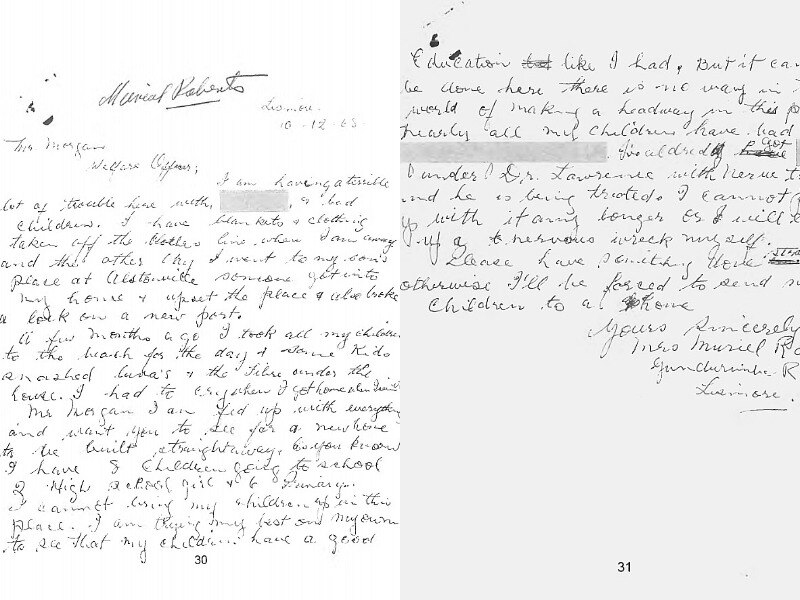 Muriel Roberts
Lismore.
10-12-63.
Mr Morgan
Welfare Officer;
I am having a terrible
lot of trouble here with, & bad
children. I have blankets & clothing
taken off the clothes line when I am away
and the other day I went to my son's
place at Alstonville someone got into
my home & upset the place & also broke
a lock on a new port.
A few months ago I took all my children
to the beach for the day & some kids
smashed & the under the
house. I had to cry when I got home
Mr Morgan I am fed up with everything
and want you to see for a new home
to be built straightaway, as you know
I have 8 children going to school
2 High school girl & 6 Primary.
I cannot bring my children up in this
place. I am trying my best on my own
to see that my children have a good
30
Education like I had, But it can
be done here there is no way in
world of making a headway in this p
nearly all my children have had
got
under Dr. Lawrence with nerve
and he is being treated. I cannot
up with it any longer or I will
up a nervous wreck myself.
Please have something done
otherwise I'll be forced to send m
children to a home
Yours Sincerely
Mrs Muriel Ro
Gundurimba R
Lismore.
31